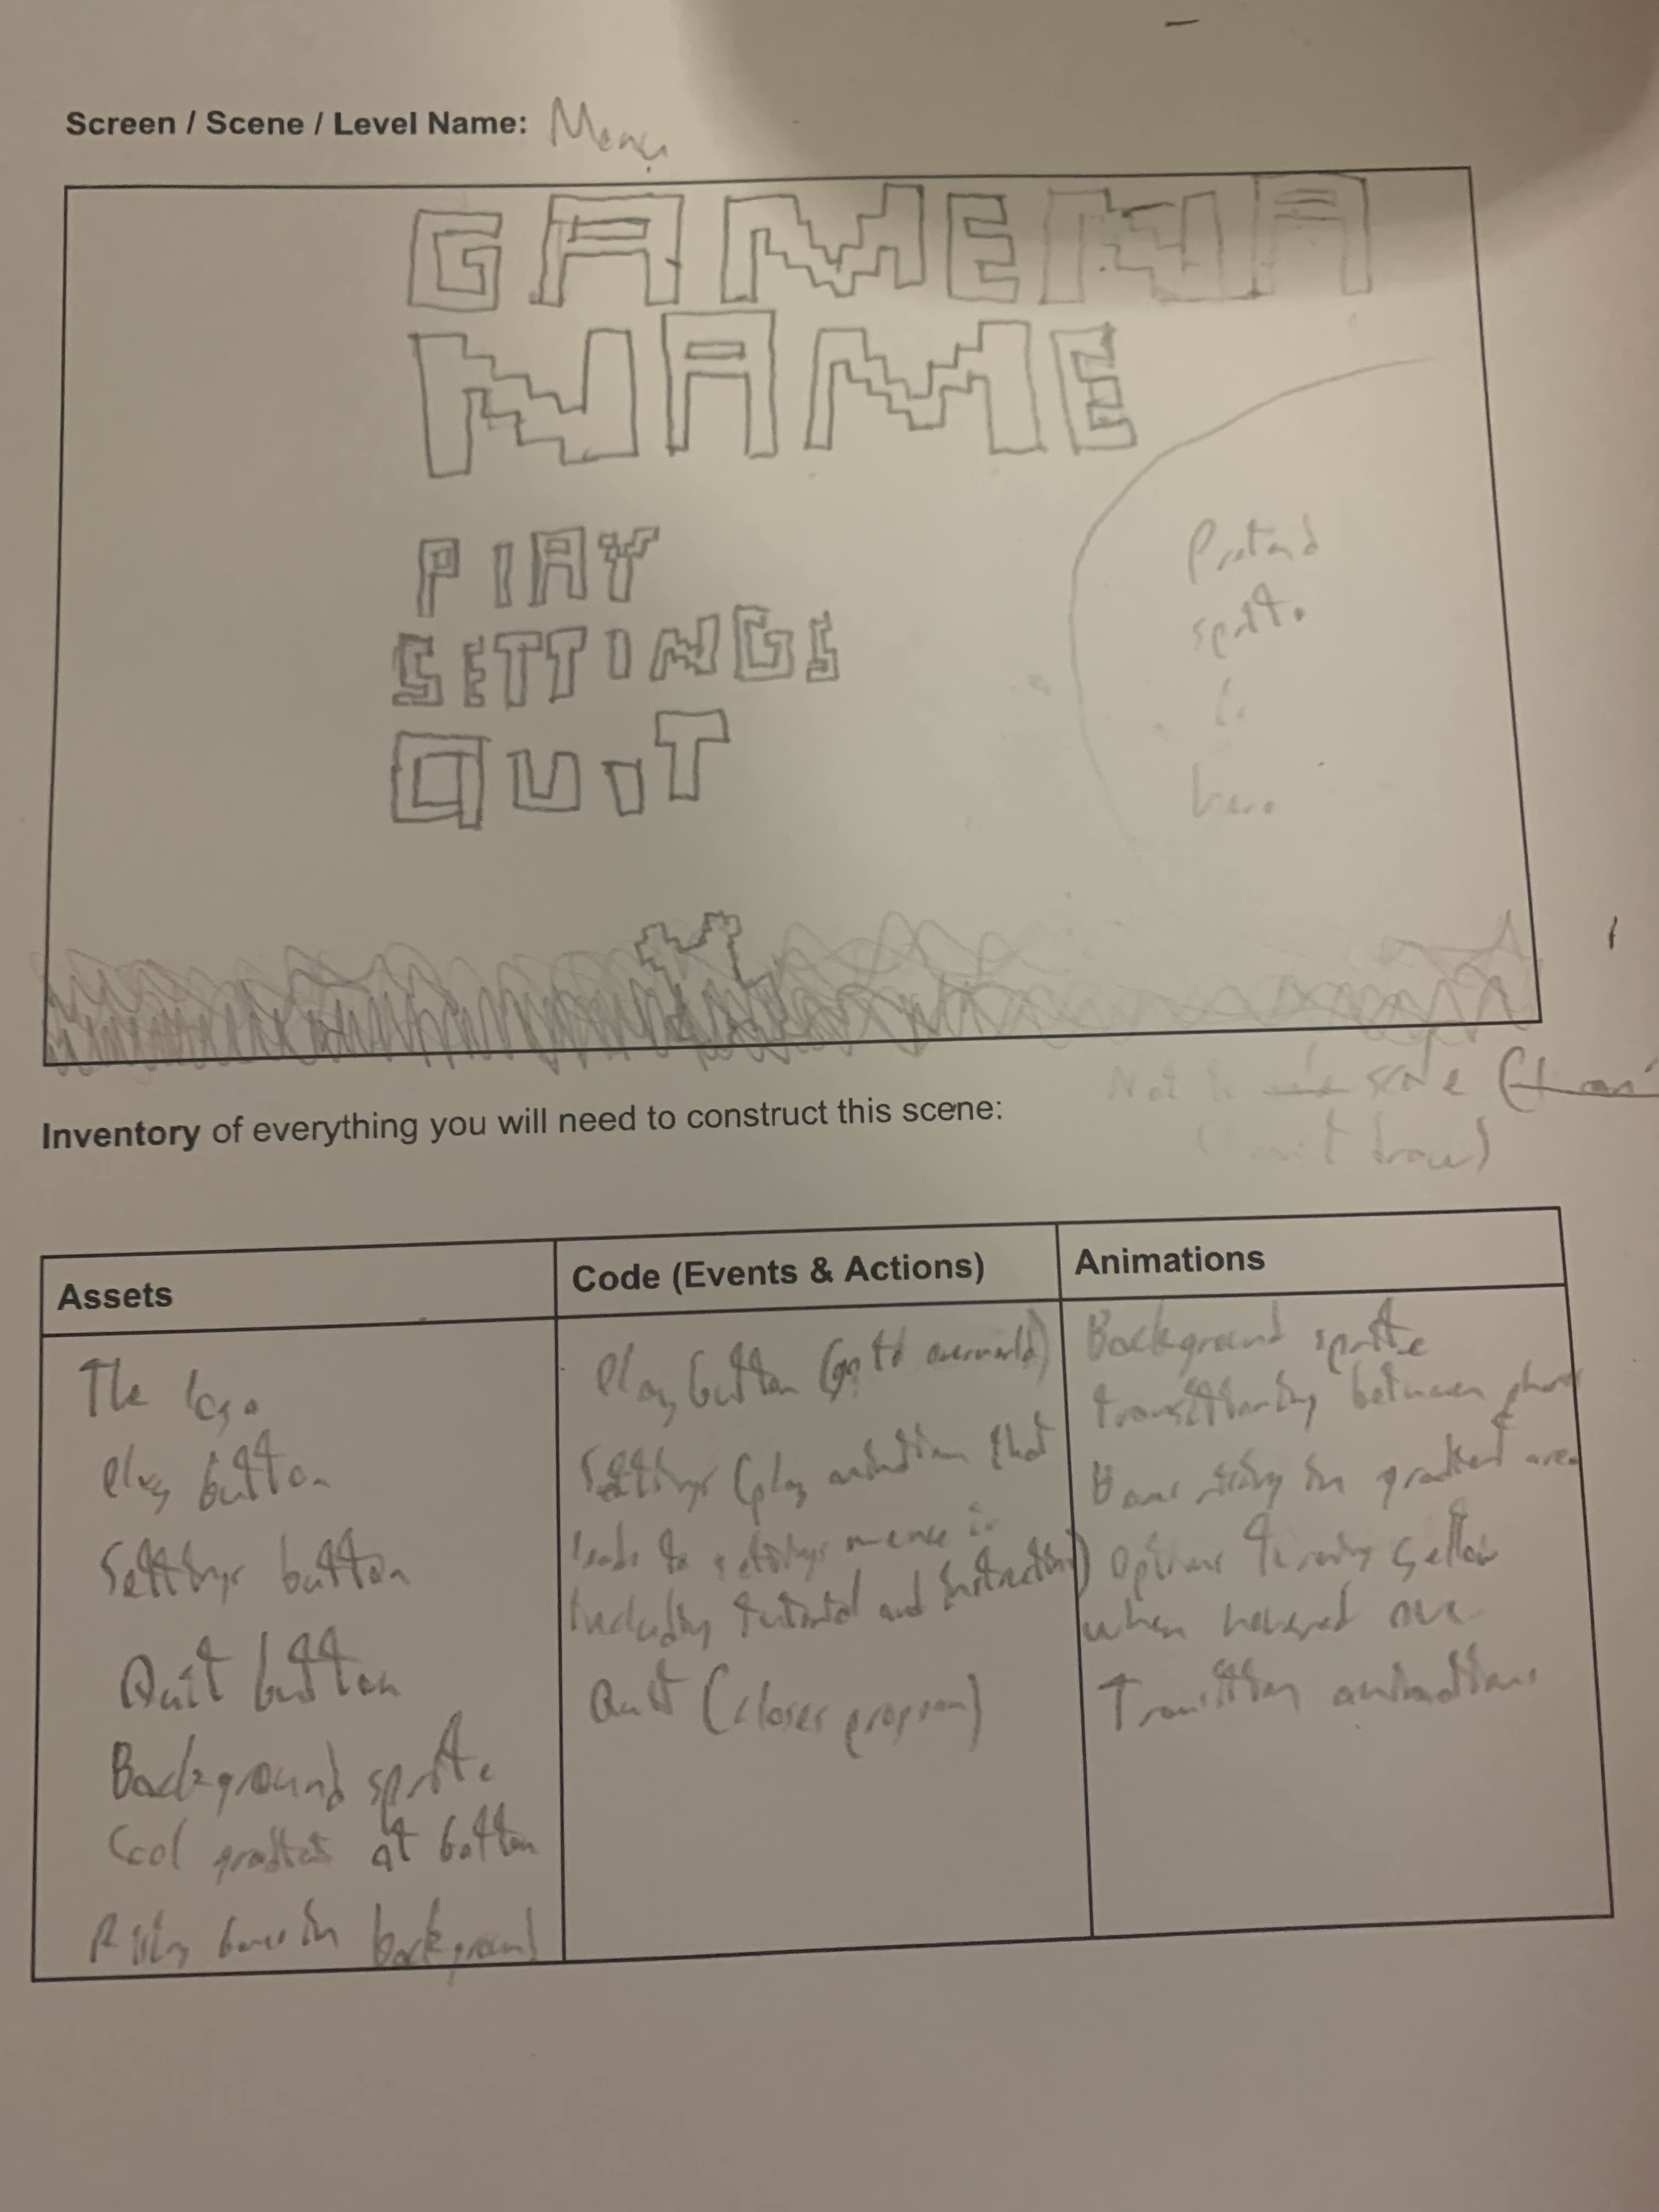 Screen / Scene / Level Name: Menu
GAMENA
NAME
PlAY
SETTINGS
QUIT
Pretend
sprite
is
here
Not to scale
(can't draw)
Inventory of everything you will need to construct this scene:
Assets
The logo
Play button
Settings button
Quit button
Background sprite
Cool gradient at bottom
Rising bones in background
Code (Events & Actions)
Play button (go to overworld)
Settings (play animation that
leads to settings menu
including tutorial and instructions)
Quit (closes program)
Animations
Background sprite
transitioning between
Bones rising in gradient area
Options turning yellow
when hovered over
Transition animations